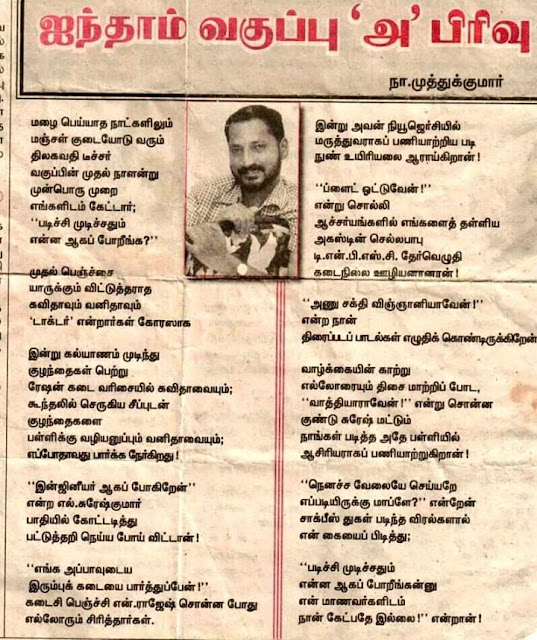 ஐந்தாம் வகுப்பு ‘அ’ பிரிவு
நா.முத்துக்குமார்
மழை பெய்யாத நாட்களிலும்
மஞ்சள் குடையோடு வரும்
திலகவதி டீச்சர்
வகுப்பின் முதல் நாளன்று
முன்பொரு முறை
எங்களிடம் கேட்டார்;
‘‘படிச்சி முடிச்சதும்
என்ன ஆகப் போறீங்க?’’
முதல் பெஞ்சை
யாருக்கும் விட்டுத்தராத
கவிதாவும் வனிதாவும்
‘டாக்டர்’ என்றார்கள் கோரஸாக
இன்று கல்யாணம் முடிந்து
குழந்தைகள் பெற்று
ரேஷன் கடை வரிசையில் கவிதாவையும்;
கூந்தலில் செருகிய சீப்புடன்
குழந்தைகளை
பள்ளிக்கு வழியனுப்பும் வனிதாவையும்;
எப்போதாவது பார்க்க நேர்கிறது!
‘‘இன்ஜினீயர் ஆகப் போகிறேன்’’
என்ற எல்.சுரேஷ்குமார்
பாதியில் கோட்டடித்து
பட்டுத்தறி நெய்ய போய் விட்டான்!
‘‘எங்க அப்பாவுடைய
இரும்புக் கடையை பார்த்துப்பேன்!’’
கடைசி பெஞ்ச்சி என்.ராஜேஷ் சொன்ன போது
எல்லோரும் சிரித்தார்கள்.
இன்று அவன் நியூஜெர்சியில்
மருத்துவராகப் பணியாற்றிய படி
நுண் உயிரியலை ஆராய்கிறான்!
‘‘ப்ளைட் ஓட்டுவேன்!’’
என்று சொல்லி
ஆச்சர்யங்களில் எங்களைத் தள்ளிய
அகஸ்டின் செல்லபாபு
டி.என்.பி.எஸ்.சி. தேர்வெழுதி
கடைநிலை ஊழியனானான்!
‘‘அணு சக்தி விஞ்ஞானியாவேன்!’’
என்ற நான்
திரைப்படப் பாடல்கள் எழுதிக் கொண்டிருக்கிறேன்
வாழ்க்கையின் காற்று
எல்லோரையும் திசை மாற்றிப் போட,
‘‘வாத்தியாராவேன்!’’ என்று சொன்ன
குண்டு சுரேஷ் மட்டும்
நாங்கள் படித்த அதே பள்ளியில்
ஆசிரியராகப் பணியாற்றுகிறான்!
‘‘நெனச்ச வேலையே செய்யறே
எப்படியிருக்கு மாப்ளே?’’ என்றேன்
சாக்பீஸ் துகள் படிந்த விரல்களால்
என் கையைப் பிடித்து;
‘‘படிச்சி முடிச்சதும்
என்ன ஆகப் போறீங்கன்னு
என் மாணவர்களிடம்
நான் கேட்பதே இல்லை!’’ என்றான்!